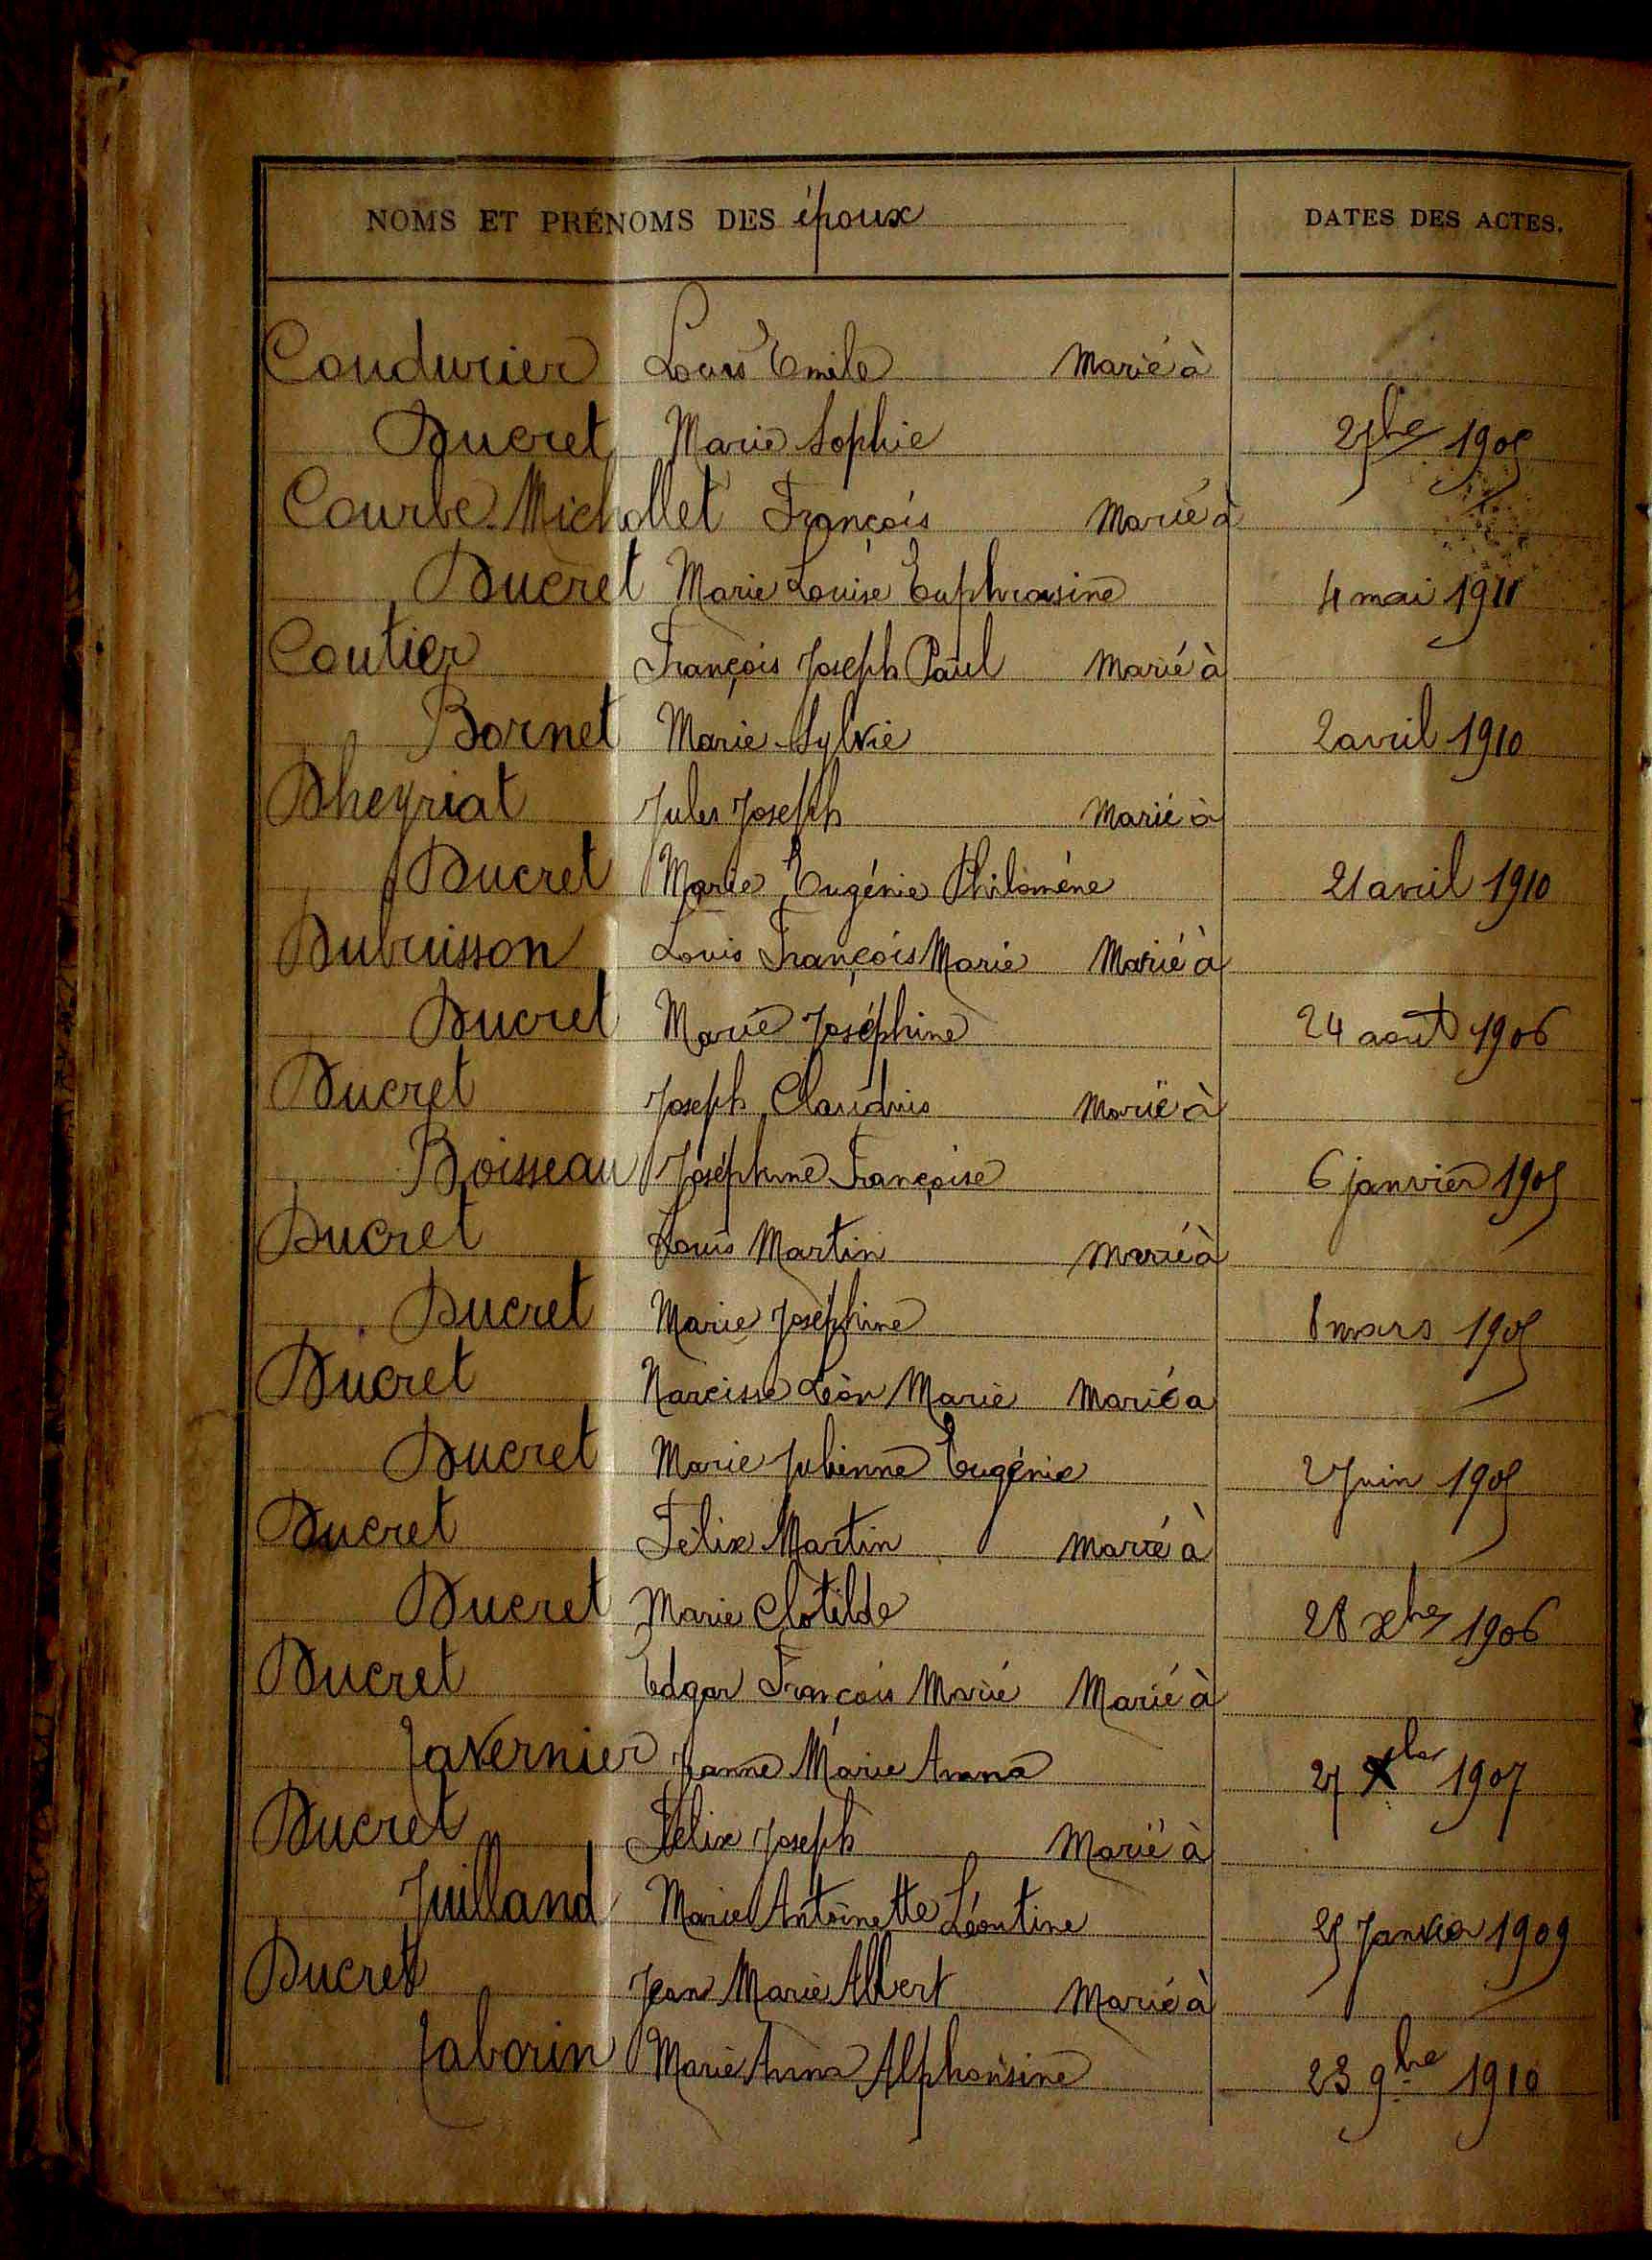 NOMS ET PRÉNOMS DES époux DATES DES ACTES.
Coudurier Louis Emile Marié à
Ducret Marie Sophie 1905
Courbe-Michollet François Marié à
Ducret Marie Louise Euphrasine 4 mai 1911
Coutier François Joseph Paul Marié à
Bornet Marie Sylvie 2 avril 1910
Dheyriat Jules Joseph Marié à
Ducret Marie Eugénie Philomène 21 avril 1910
Dubuisson Louis François Marie Marié à
Ducret Marie Joséphine 24 août 1906
Ducret Joseph Claudius Marié à
Boisseau Joséphine Françoise 6 janvier 1905
Ducret Louis Martin Marié à
Ducret Marie Joséphine mars 1905
Ducret Narcisse Léon Marie Marié a
Ducret Marie Julienne Eugénie Juin 1905
Ducret Félix Martin Marié à
Ducret Marie Clotilde 28 xbre 1906
Ducret Edgar François Marie Marié à
Tavernier Jeanne Marie Anna 27 Xbre 1907
Ducret Félix Joseph Marié à
Juilland Marie Antoinette Léontine 25 Janvier 1909
Ducret Jean Marie Albert Marié à
Taborin Marie Anna Alphonsine 23 9bre 1910